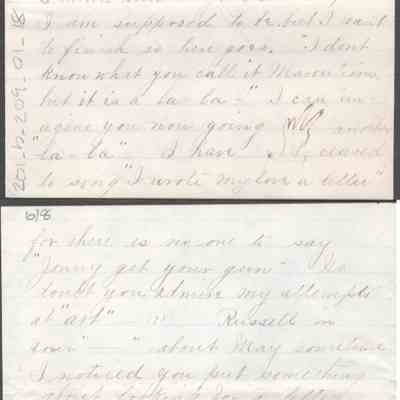 I am supposed to be but I want
to finish so here goes. "I don't
know what you call it Mason time
but it is a la-la-" I can im-
agine you now going another
"la-la". I have ceased
to song "I wrote my love a letter"
201-b-209-01-18
6/8
for there is no one to say
"Jonny get your gun" No
doubt you admire my attempts
at "art" Russell on
" about May sometime
I noticed you put something
about looking for a letter